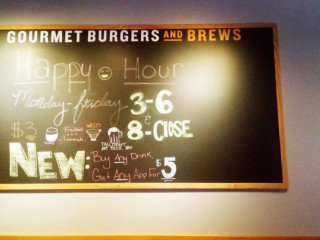 GOURMET BURGERS AND BREWS
Happy Hour
Monday - Friday 3-6
&
$3 8-CLOSE
NEW: Buy Any Drink
Get Any App For $5